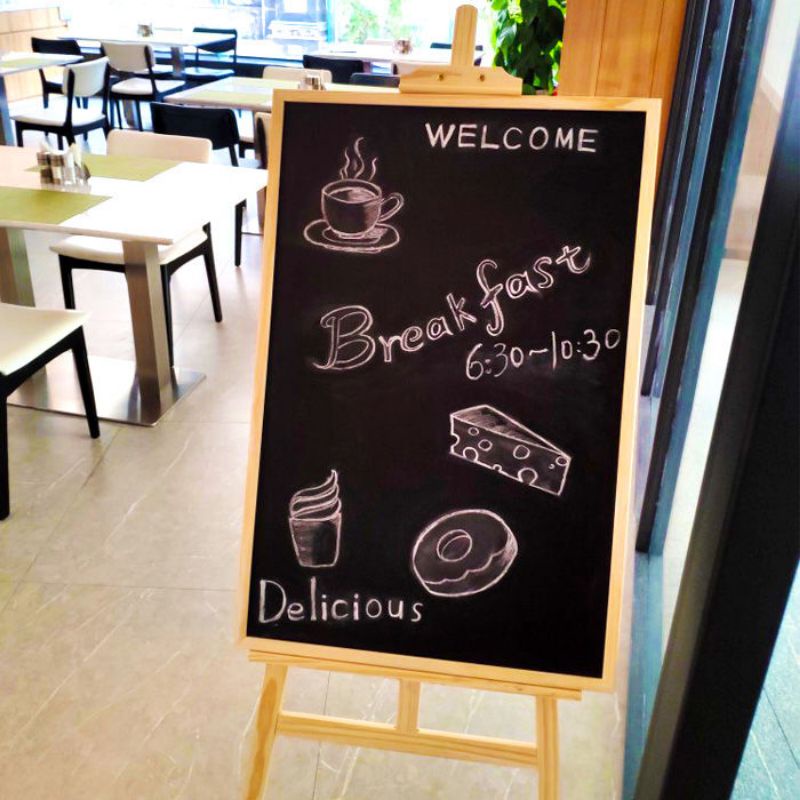 WELCOME
Breakfast
6:30~10:30
Delicious